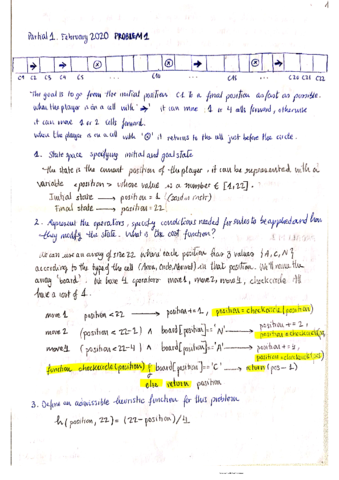 1
Partial 1. February 2020 PROBLEM 1
→ ⊗ → ⊗ →
C1 C2 C3 C4 C5 ... C10 ... C15 ... C20 C21 C22
The goal is to go from the initial position C1 to a final position as fast as possible.
When the player is on a cell with '→' it can move 1 or 4 cells forward, otherwise
it can move 1 or 2 cells forward.
When the player is on a cell with '⊗' it returns to the cell just before the circle.
1. State space specifying initial and goal state
The state is the current position of the player. it can be represented with a
variable <position> whose value is a number ∈ [1,22].
Initial state → position = 1
Final state → position = 22
2. Represent the operators, specify conditions needed for rules to be applied and how
they modify the state. What is the cost function?
We can use an array of size 22 where each position has 3 values {A, C, N}
according to the type of the cell (Arrow, Circle, Normal) in that position. We'll name the
array 'board'. We have 4 operators move 1, move 2, move 4, checkcircle. All
have a cost of 1.
move 1 position < 22 → position += 1, position = checkcircle(position)
move 2 (position < 22-1) ∧ board[position] == 'N' → position += 2,
position = checkcircle(pos)
move 4 (position < 22-4) ∧ board[position] == 'A' → position += 4,
position = checkcircle(pos)
function checkcircle(position) if board[position] == 'C' → return (pos - 1)
else return position
3. Define an admissible heuristic function for this problem
h(position, 22) = (22 - position)/4